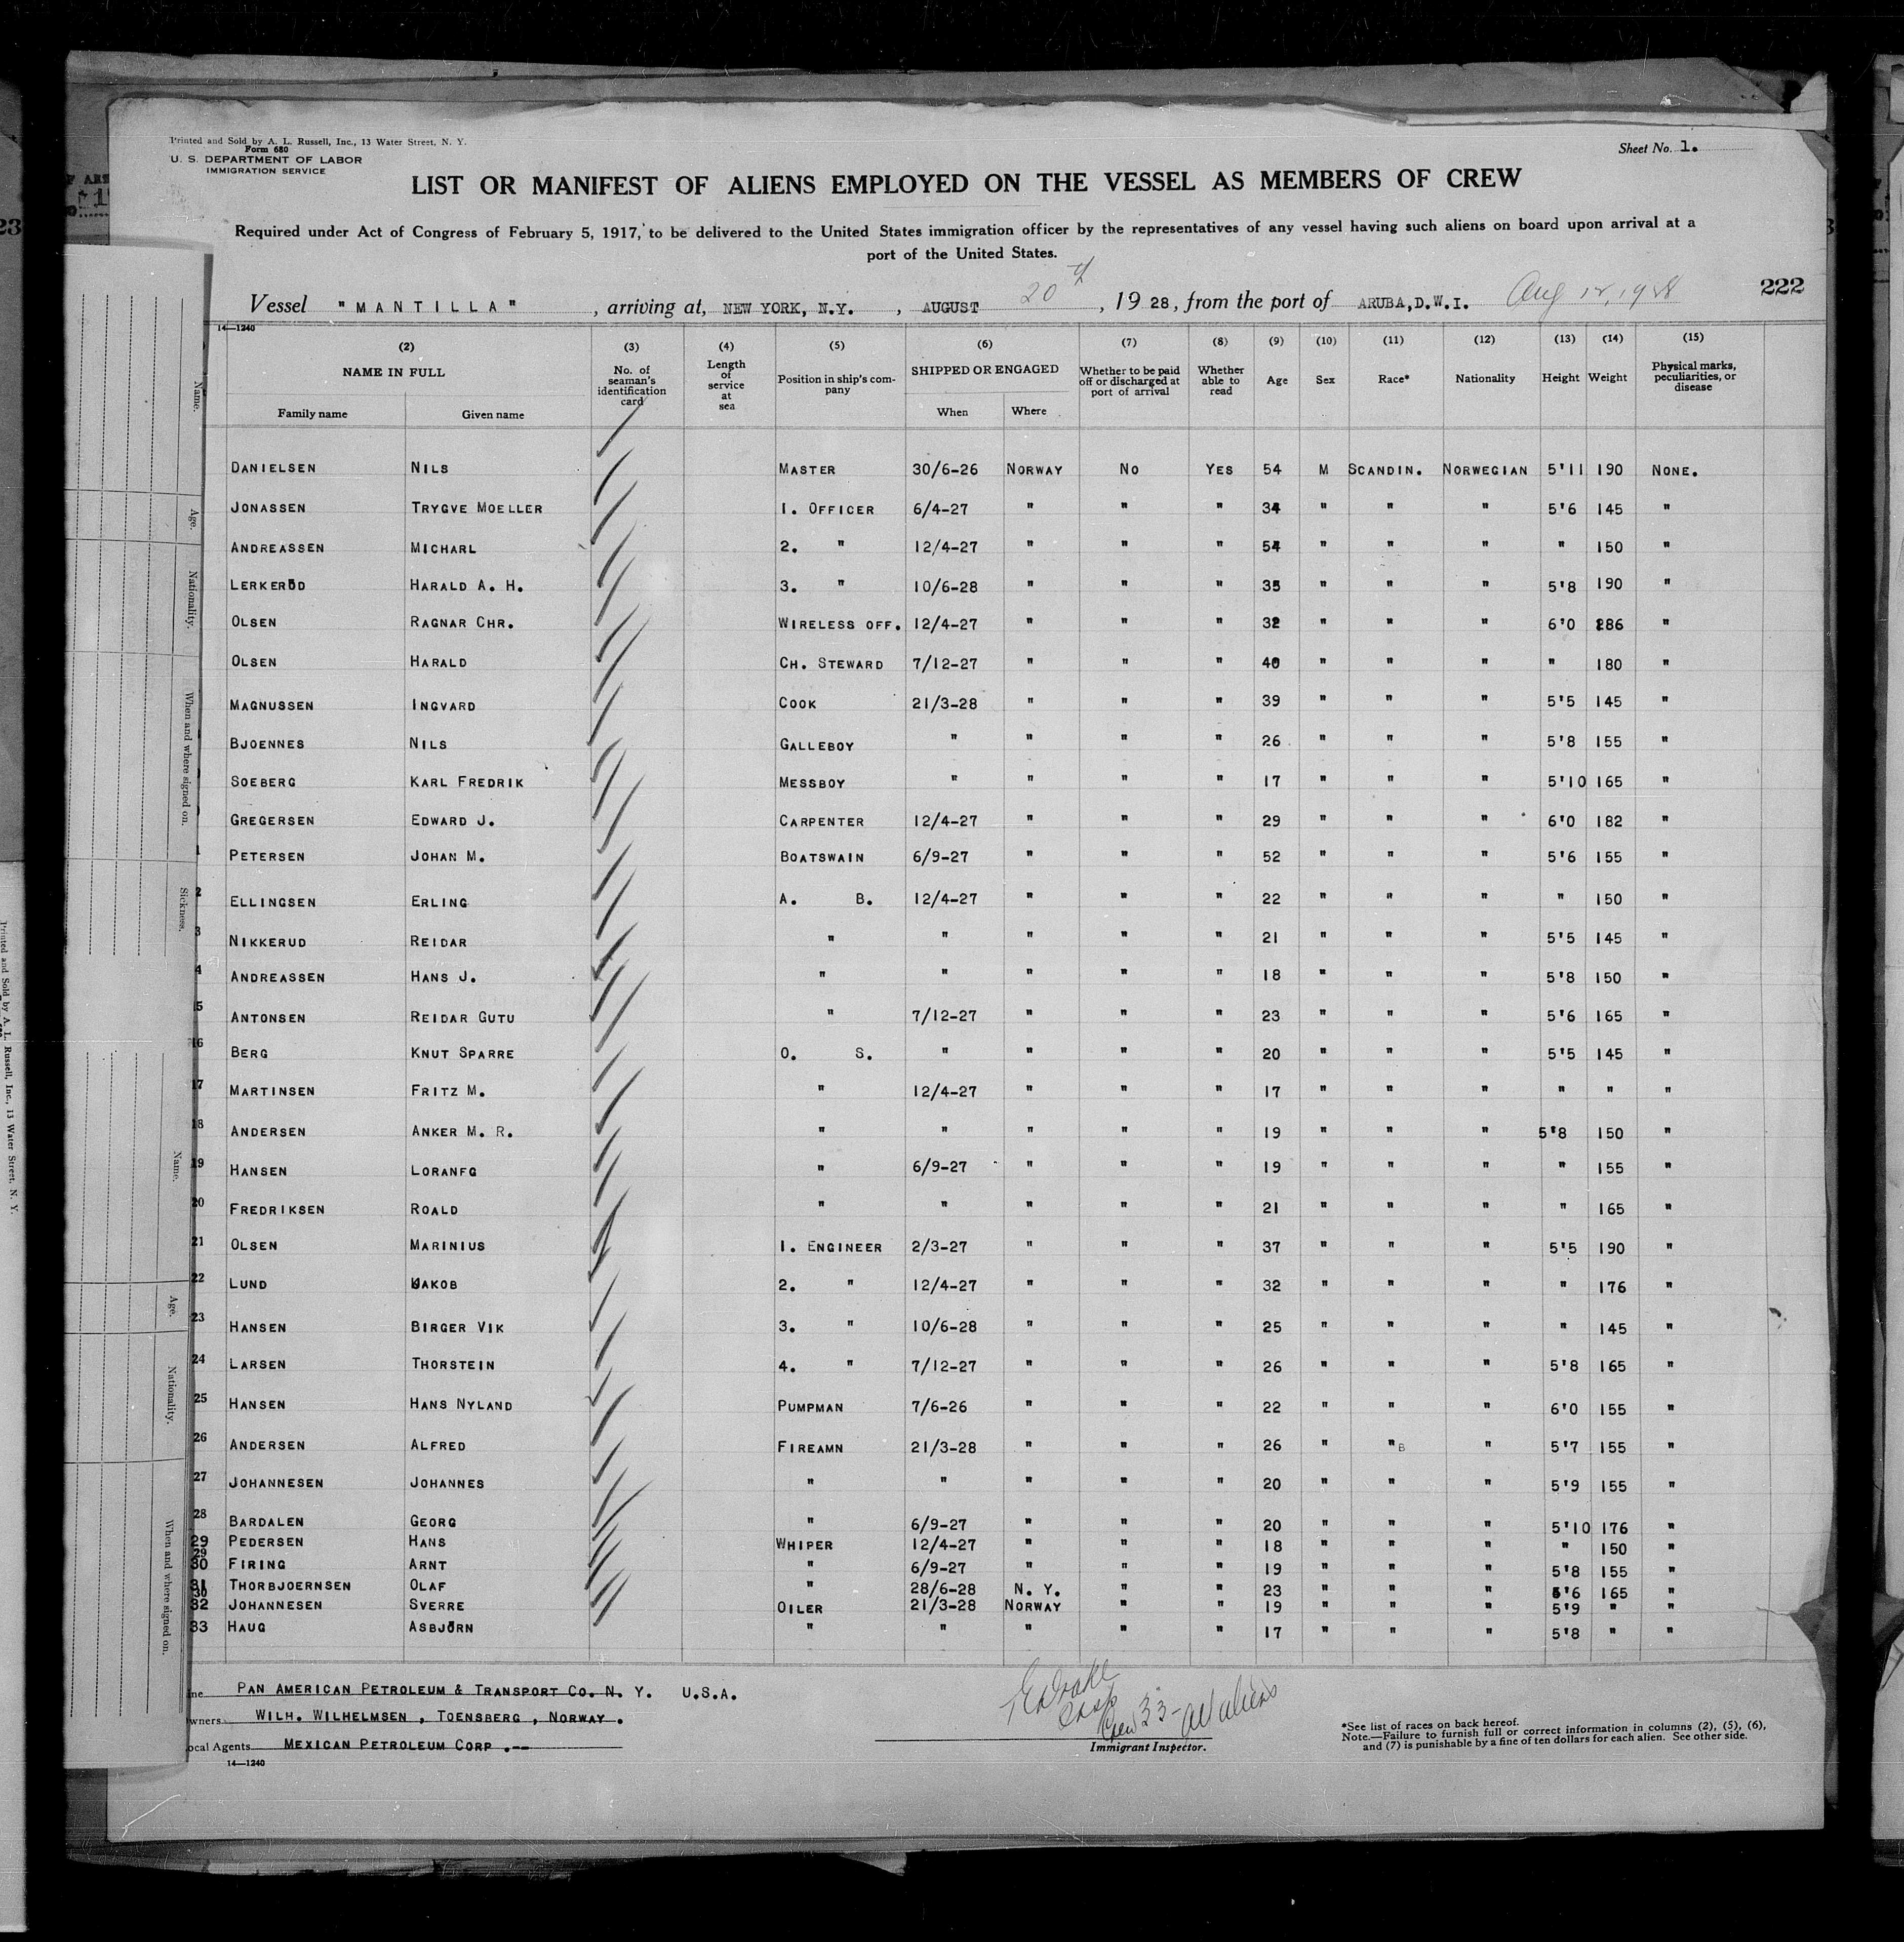 Printed and Sold by A. L. Russell, Inc., 13 Water Street, N. Y.
Form 680
U. S. DEPARTMENT OF LABOR
IMMIGRATION SERVICE
Sheet No. 1.
LIST OR MANIFEST OF ALIENS EMPLOYED ON THE VESSEL AS MEMBERS OF CREW
Required under Act of Congress of February 5, 1917, to be delivered to the United States immigration officer by the representatives of any vessel having such aliens on board upon arrival at a
port of the United States.
Vessel "MANTILLA", arriving at, NEW YORK, N.Y., AUGUST 20th, 1928, from the port of ARUBA, D.W.I. Aug 12, 1928
222
14—1240
(2) (3) (4) (5) (6) (7) (8) (9) (10) (11) (12) (13) (14) (15)
NAME IN FULL No. of seaman's identification card Length of service at sea Position in ship's company SHIPPED OR ENGAGED Whether to be paid off or discharged at port of arrival Whether able to read Age Sex Race* Nationality Height Weight Physical marks, peculiarities, or disease
Family name Given name When Where
DANIELSEN NILS MASTER 30/6-26 NORWAY NO YES 54 M SCANDIN. NORWEGIAN 5'11 190 NONE.
JONASSEN TRYGVE MOELLER 1. OFFICER 6/4-27 " " " 34 " " " 5'6 145 "
ANDREASSEN MICHARL 2. " 12/4-27 " " " 54 " " " " 150 "
LERKERÖD HARALD A. H. 3. " 10/6-28 " " " 35 " " " 5'8 190 "
OLSEN RAGNAR CHR. WIRELESS OFF. 12/4-27 " " " 32 " " " 6'0 286 "
OLSEN HARALD CH. STEWARD 7/12-27 " " " 40 " " " " 180 "
MAGNUSSEN INGVARD COOK 21/3-28 " " " 39 " " " 5'5 145 "
BJOENNES NILS GALLEBOY " " " " 26 " " " 5'8 155 "
SOEBERG KARL FREDRIK MESSBOY " " " " 17 " " " 5'10 165 "
GREGERSEN EDWARD J. CARPENTER 12/4-27 " " " 29 " " " 6'0 182 "
1 PETERSEN JOHAN M. BOATSWAIN 6/9-27 " " " 52 " " " 5'6 155 "
2 ELLINGSEN ERLING A. B. 12/4-27 " " " 22 " " " " 150 "
3 NIKKERUD REIDAR " " " " " 21 " " " 5'5 145 "
4 ANDREASSEN HANS J. " " " " " 18 " " " 5'8 150 "
15 ANTONSEN REIDAR GUTU " 7/12-27 " " " 23 " " " 5'6 165 "
16 BERG KNUT SPARRE O. S. " " " " 20 " " " 5'5 145 "
17 MARTINSEN FRITZ M. " 12/4-27 " " " 17 " " " " " "
18 ANDERSEN ANKER M. R. " " " " " 19 " " " 5'8 150 "
19 HANSEN LORANFG " 6/9-27 " " " 19 " " " " 155 "
20 FREDRIKSEN ROALD " " " " " 21 " " " " 165 "
21 OLSEN MARINIUS 1. ENGINEER 2/3-27 " " " 37 " " " 5'5 190 "
22 LUND JAKOB 2. " 12/4-27 " " " 32 " " " " 176 "
23 HANSEN BIRGER VIK 3. " 10/6-28 " " " 25 " " " " 145 "
24 LARSEN THORSTEIN 4. " 7/12-27 " " " 26 " " " 5'8 165 "
25 HANSEN HANS NYLAND PUMPMAN 7/6-26 " " " 22 " " " 6'0 155 "
26 ANDERSEN ALFRED FIREAMN 21/3-28 " " " 26 " "B " 5'7 155 "
27 JOHANNESEN JOHANNES " " " " " 20 " " " 5'9 155 "
28 BARDALEN GEORG " 6/9-27 " " " 20 " " " 5'10 176 "
29 PEDERSEN HANS WHIPER 12/4-27 " " " 18 " " " " 150 "
30 FIRING ARNT " 6/9-27 " " " 19 " " " 5'8 155 "
31 THORBJOERNSEN OLAF " 28/6-28 N. Y. " " 23 " " " 5'6 165 "
32 JOHANNESEN SVERRE OILER 21/3-28 NORWAY " " 19 " " " 5'9 " "
33 HAUG ASBJÖRN " " " " " 17 " " " 5'8 " "
ine PAN AMERICAN PETROLEUM & TRANSPORT CO. N. Y. U.S.A.
wners WILH. WILHELMSEN, TOENSBERG, NORWAY.
ocal Agents MEXICAN PETROLEUM CORP.--
14—1240
Crew 33 - All aliens
Immigrant Inspector.
*See list of races on back hereof.
Note.—Failure to furnish full or correct information in columns (2), (5), (6),
and (7) is punishable by a fine of ten dollars for each alien. See other side.
Name.
Age.
Nationality.
When and where signed on.
Sickness.
Name.
Age.
Nationality.
When and where signed on.
Printed and Sold by A. L. Russell, Inc., 13 Water Street, N. Y.